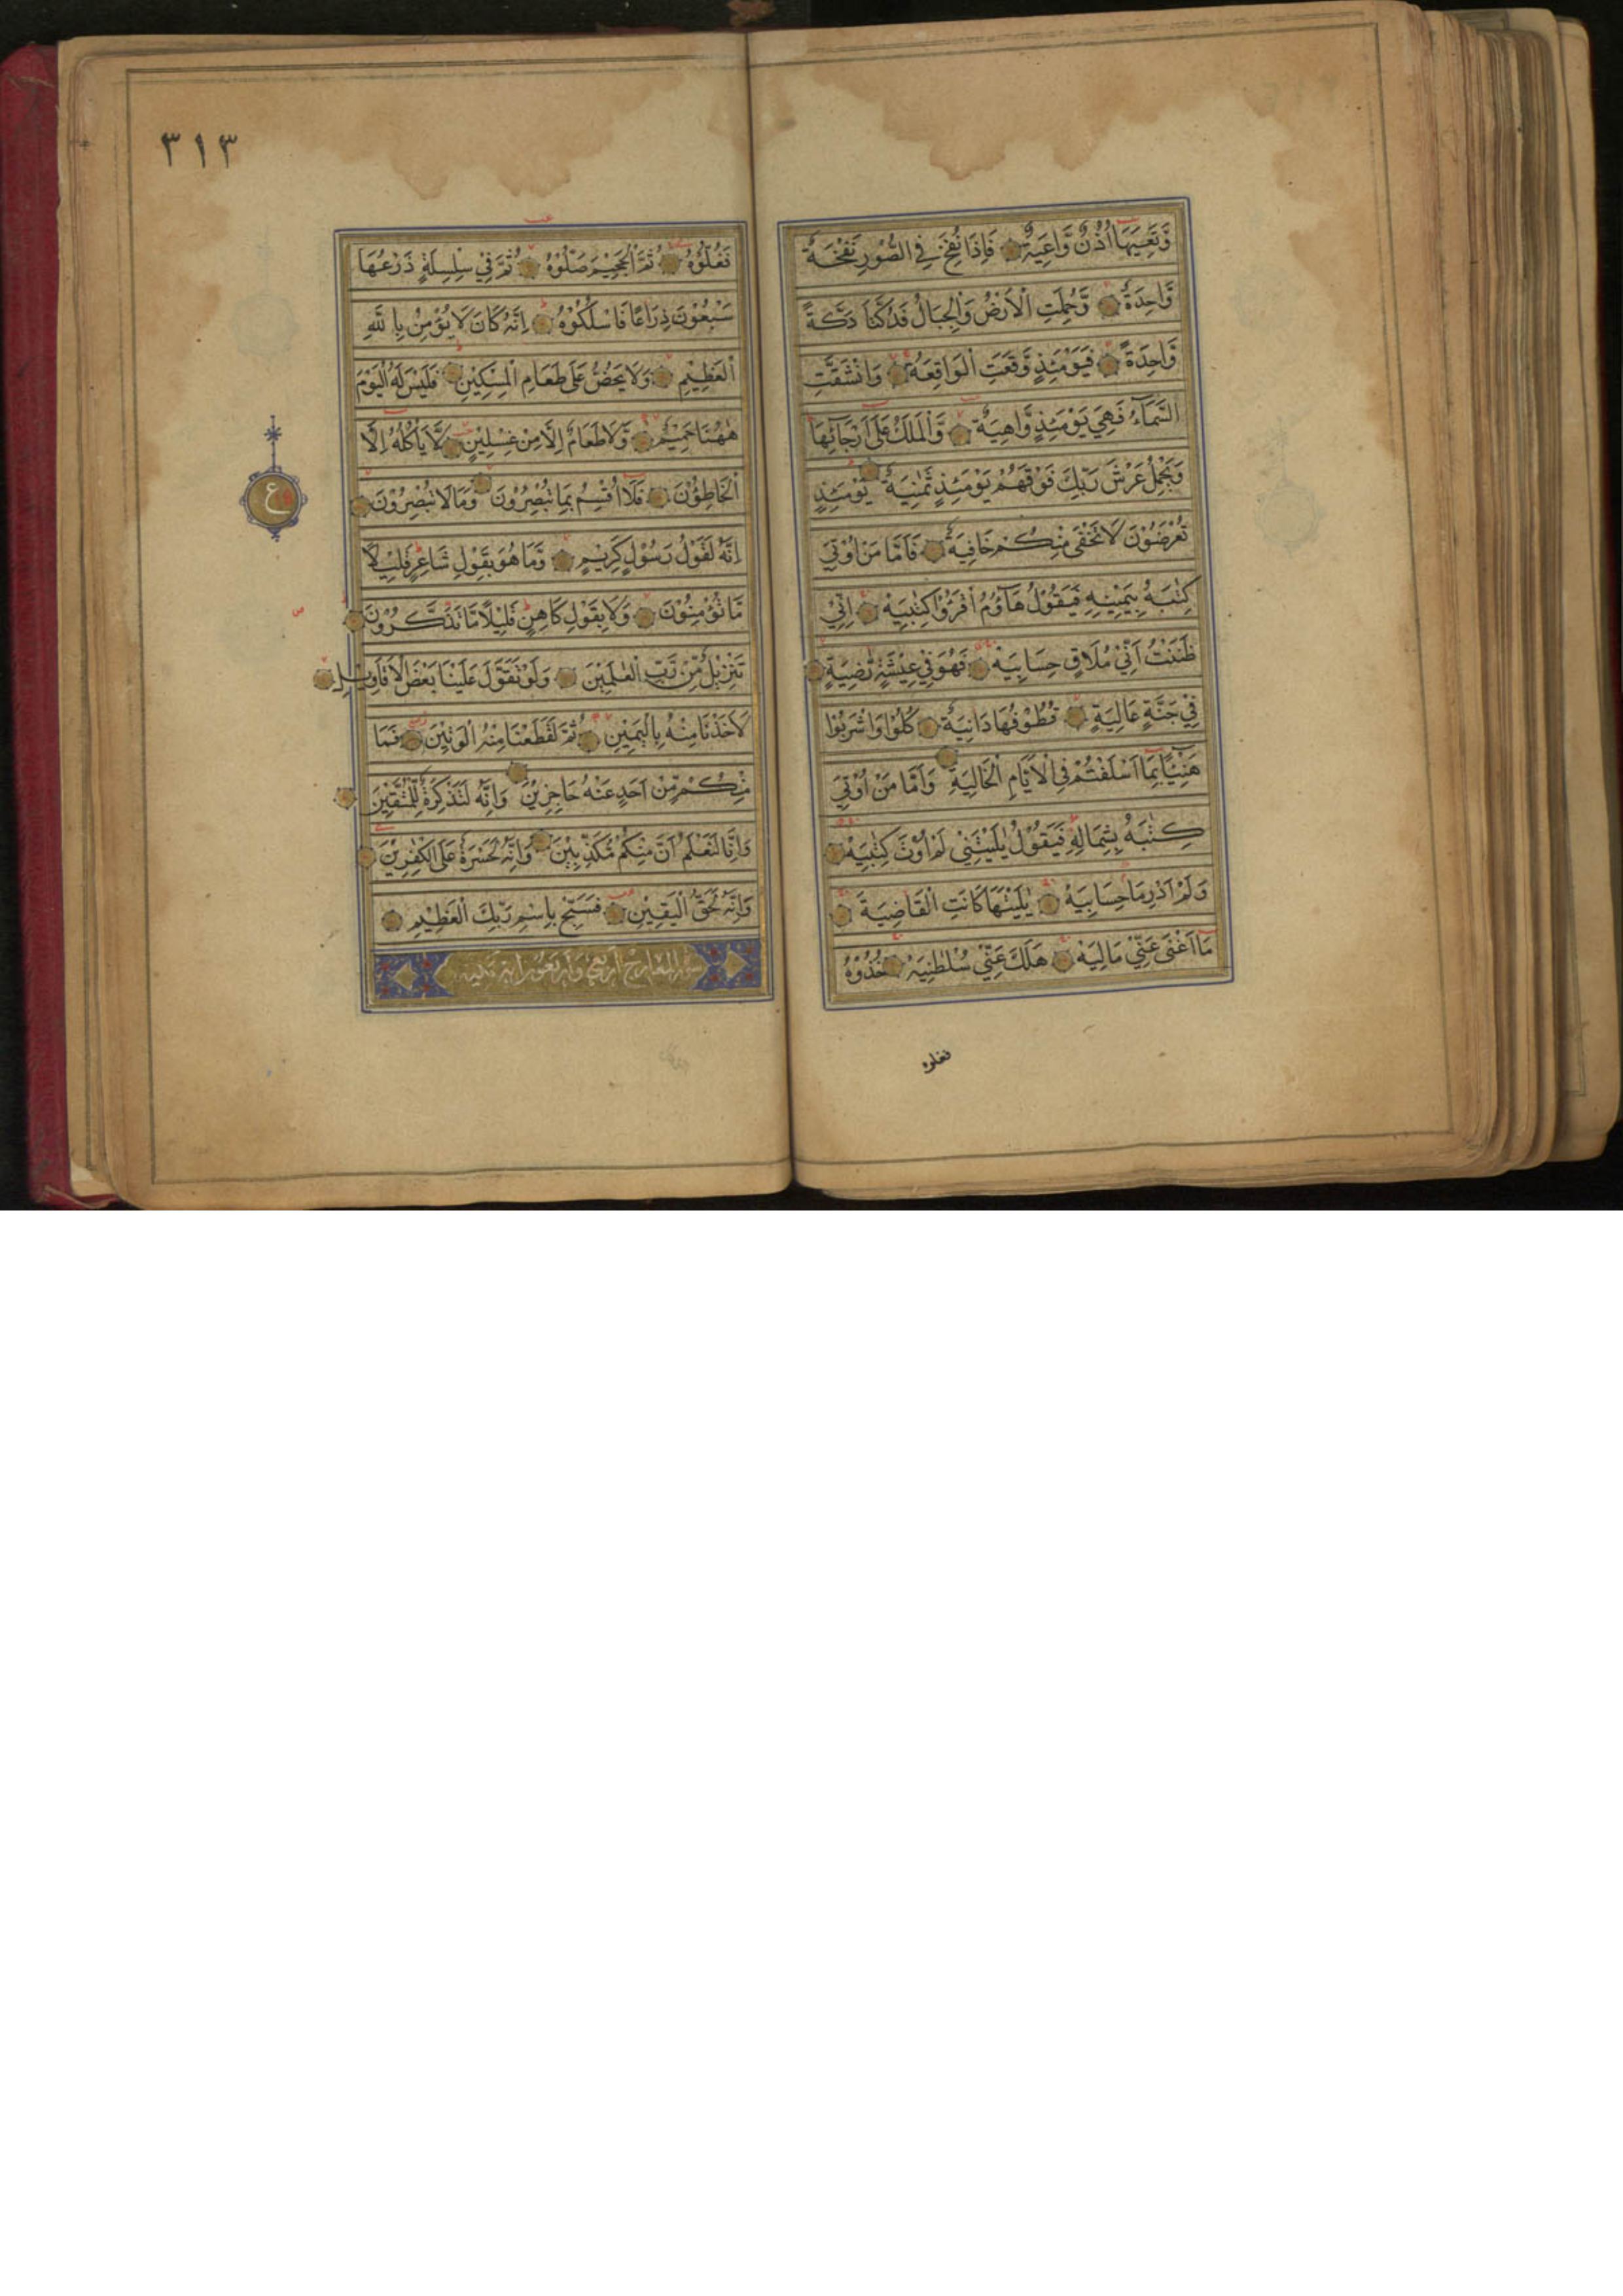 وَّتَعِيَهَا اُذُنٌ وَّاعِيَةٌ فَاِذَا نُفِخَ فِي الصُّوْرِ نَفْخَةٌ
وَّاحِدَةٌ وَّحُمِلَتِ الْاَرْضُ وَالْجِبَالُ فَدُكَّتَا دَكَّةً
وَّاحِدَةً فَيَوْمَئِذٍ وَّقَعَتِ الْوَاقِعَةُ وَانْشَقَّتِ
السَّمَآءُ فَهِيَ يَوْمَئِذٍ وَّاهِيَةٌ وَّالْمَلَكُ عَلٰى اَرْجَآئِهَا
وَيَحْمِلُ عَرْشَ رَبِّكَ فَوْقَهُمْ يَوْمَئِذٍ ثَمٰنِيَةٌ يَوْمَئِذٍ
تُعْرَضُوْنَ لَا تَخْفٰى مِنْكُمْ خَافِيَةٌ فَاَمَّا مَنْ اُوْتِيَ
كِتٰبَهُ بِيَمِيْنِهِ فَيَقُوْلُ هَآؤُمُ اقْرَؤُا كِتٰبِيَهْ اِنِّيْ
ظَنَنْتُ اَنِّيْ مُلَاقٍ حِسَابِيَهْ فَهُوَ فِيْ عِيْشَةٍ رَّاضِيَةٍ
فِيْ جَنَّةٍ عَالِيَةٍ قُطُوْفُهَا دَانِيَةٌ كُلُوْا وَاشْرَبُوْا
هَنِيْٓئًا بِمَا اَسْلَفْتُمْ فِي الْاَيَّامِ الْخَالِيَةِ وَاَمَّا مَنْ اُوْتِيَ
كِتٰبَهُ بِشِمَالِهِ فَيَقُوْلُ يٰلَيْتَنِيْ لَمْ اُوْتَ كِتٰبِيَهْ
وَلَمْ اَدْرِ مَا حِسَابِيَهْ يٰلَيْتَهَا كَانَتِ الْقَاضِيَةَ
مَا اَغْنٰى عَنِّيْ مَالِيَهْ هَلَكَ عَنِّيْ سُلْطٰنِيَهْ خُذُوْهُ
فغلوه
٣١٣
فَغُلُّوْهُ ثُمَّ الْجَحِيْمَ صَلُّوْهُ ثُمَّ فِيْ سِلْسِلَةٍ ذَرْعُهَا
سَبْعُوْنَ ذِرَاعًا فَاسْلُكُوْهُ اِنَّهُ كَانَ لَا يُؤْمِنُ بِاللّٰهِ
الْعَظِيْمِ وَلَا يَحُضُّ عَلٰى طَعَامِ الْمِسْكِيْنِ فَلَيْسَ لَهُ الْيَوْمَ
هٰهُنَا حَمِيْمٌ وَّلَا طَعَامٌ اِلَّا مِنْ غِسْلِيْنٍ لَّا يَاْكُلُهُ اِلَّا
الْخَاطِؤُنَ فَلَا اُقْسِمُ بِمَا تُبْصِرُوْنَ وَمَا لَا تُبْصِرُوْنَ
ع
اِنَّهُ لَقَوْلُ رَسُوْلٍ كَرِيْمٍ وَّمَا هُوَ بِقَوْلِ شَاعِرٍ قَلِيْلًا
مَّا تُؤْمِنُوْنَ وَلَا بِقَوْلِ كَاهِنٍ قَلِيْلًا مَّا تَذَكَّرُوْنَ
تَنْزِيْلٌ مِّنْ رَّبِّ الْعٰلَمِيْنَ وَلَوْ تَقَوَّلَ عَلَيْنَا بَعْضَ الْاَقَاوِيْلِ
لَاَخَذْنَا مِنْهُ بِالْيَمِيْنِ ثُمَّ لَقَطَعْنَا مِنْهُ الْوَتِيْنَ فَمَا
مِنْكُمْ مِّنْ اَحَدٍ عَنْهُ حَاجِزِيْنَ وَاِنَّهُ لَتَذْكِرَةٌ لِّلْمُتَّقِيْنَ
وَاِنَّا لَنَعْلَمُ اَنَّ مِنْكُمْ مُّكَذِّبِيْنَ وَاِنَّهُ لَحَسْرَةٌ عَلَى الْكٰفِرِيْنَ
وَاِنَّهُ لَحَقُّ الْيَقِيْنِ فَسَبِّحْ بِاسْمِ رَبِّكَ الْعَظِيْمِ
سورة المعارج اربع واربعون اية مكية